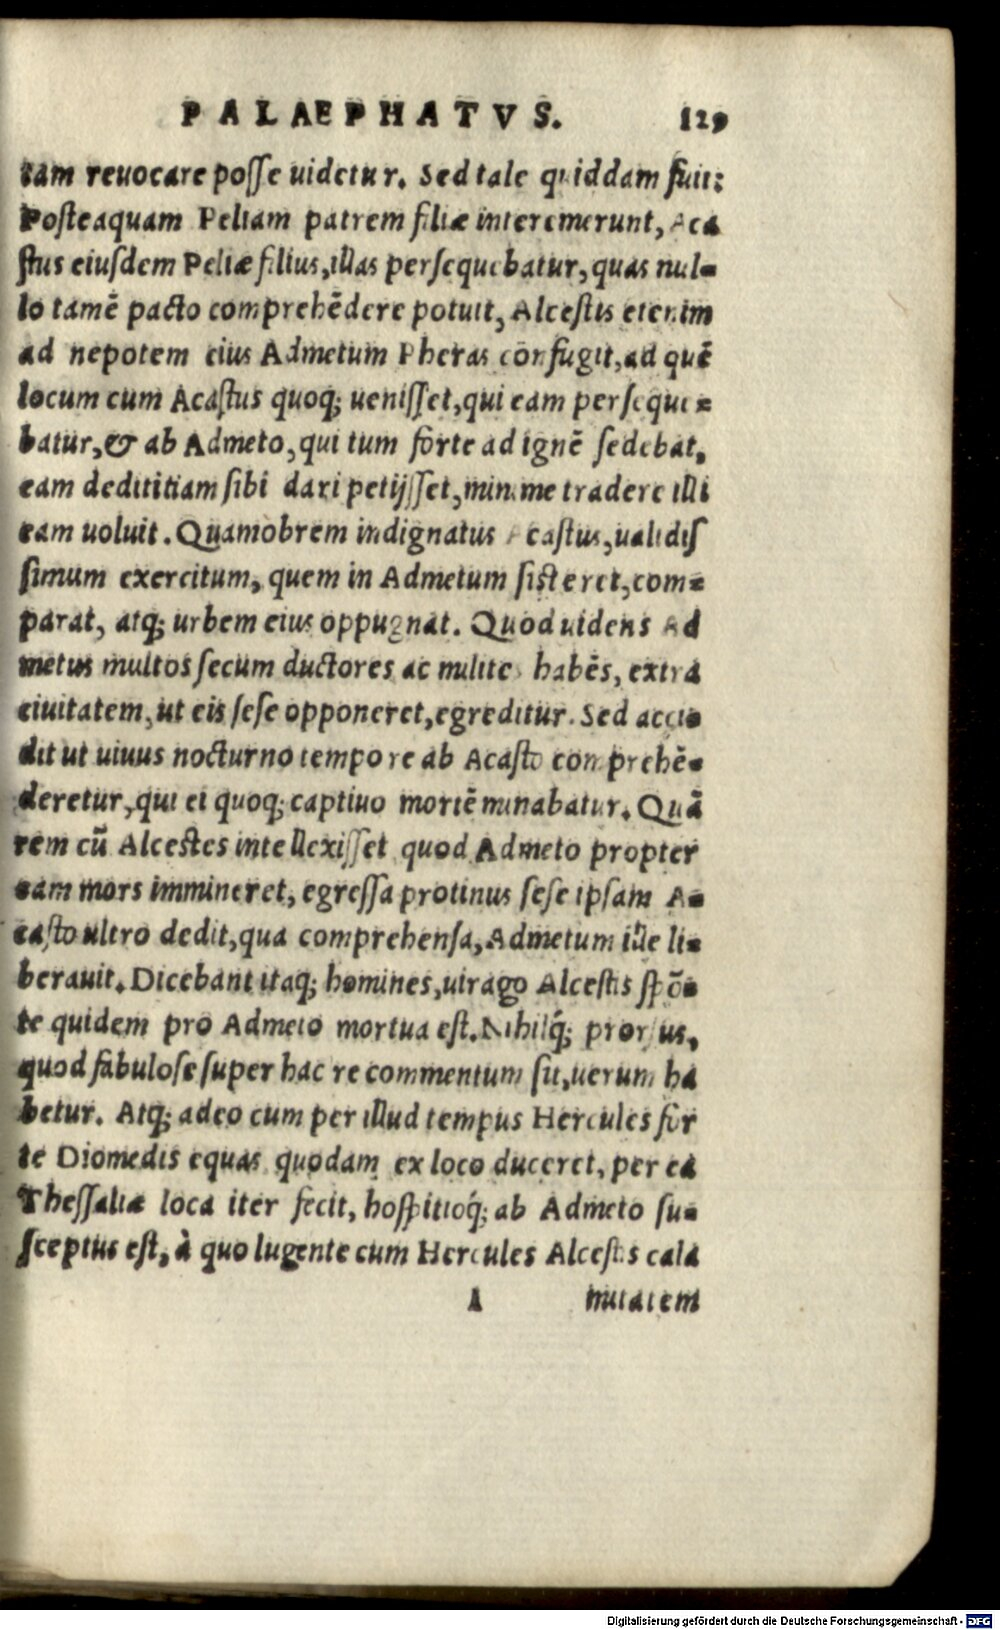 PALAEPHATVS. 129
tam reuocare posse uidetur. Sed tale quiddam fuit:
Posteaquam Peliam patrem filiæ interemerunt, Aca
stus eiusdem Peliæ filius, illas persequebatur, quas nul-
lo tamē pacto comprehēdere potuit, Alcestis etenim
ad nepotem eius Admetum Pheras confugit, ad quē
locum cum Acastus quoq; uenisset, qui eam perseque-
batur, & ab Admeto, qui tum forte ad ignē sedebat,
eam dedititiam sibi dari petijsset, minime tradere illi
eam uoluit. Quamobrem indignatus Acastus, ualidis
simum exercitum, quem in Admetum sisteret, com-
parat, atq; urbem eius oppugnat. Quod uidens Ad
metus multos secum ductores ac milites habēs, extra
ciuitatem, ut eis sese opponeret, egreditur. Sed acci-
dit ut uiuus nocturno tempore ab Acasto comprehē-
deretur, qui ei quoq; captiuo mortē minabatur. Quā
rem cū Alcestes intellexisset quod Admeto propter
eam mors immineret, egressa protinus sese ipsam A-
casto ultro dedit, qua comprehensa, Admetum ille li-
berauit. Dicebant itaq; homines, uirago Alcestis spō-
te quidem pro Admeto mortua est. Nihilq́; prorsus,
quod fabulose super hac re commentum sit, uerum ha
betur. Atq; adeo cum per illud tempus Hercules for
te Diomedis equas quodam ex loco duceret, per ea
Thessaliæ loca iter fecit, hospitioq́; ab Admeto su-
sceptus est, à quo lugente cum Hercules Alcestis cala
I mitatem
Digitalisierung gefördert durch die Deutsche Forschungsgemeinschaft - DFG